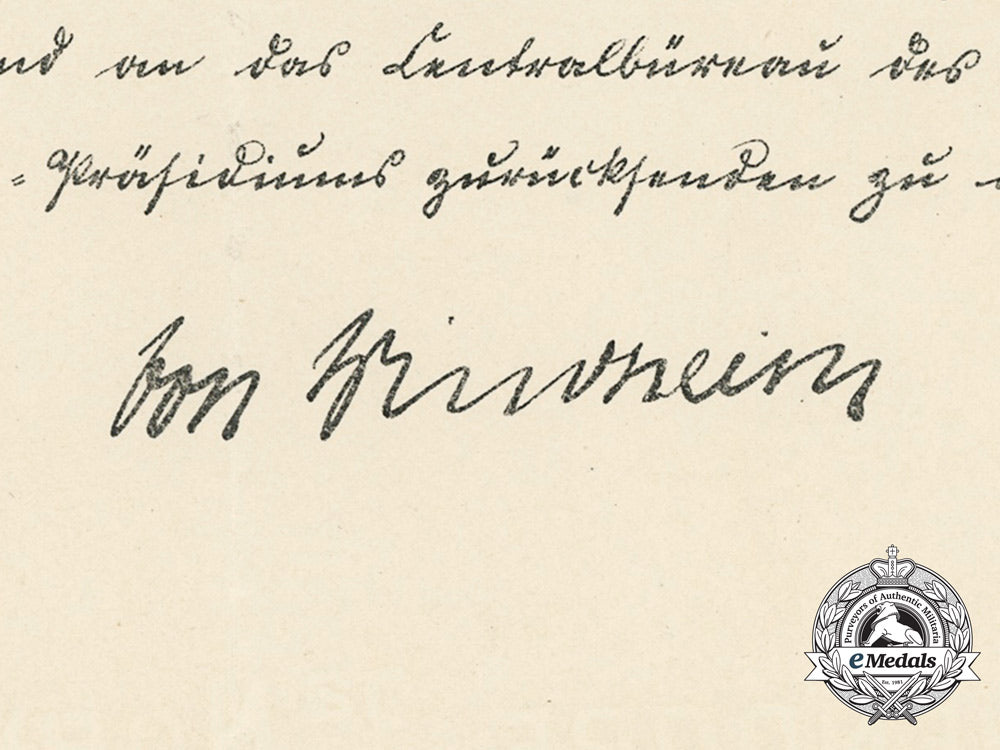 nd an das Centralbüreau des
-Präsidiums zurücksenden zu
von Windheim
Purveyors of Authentic Militaria
eMedals
Est. 1981